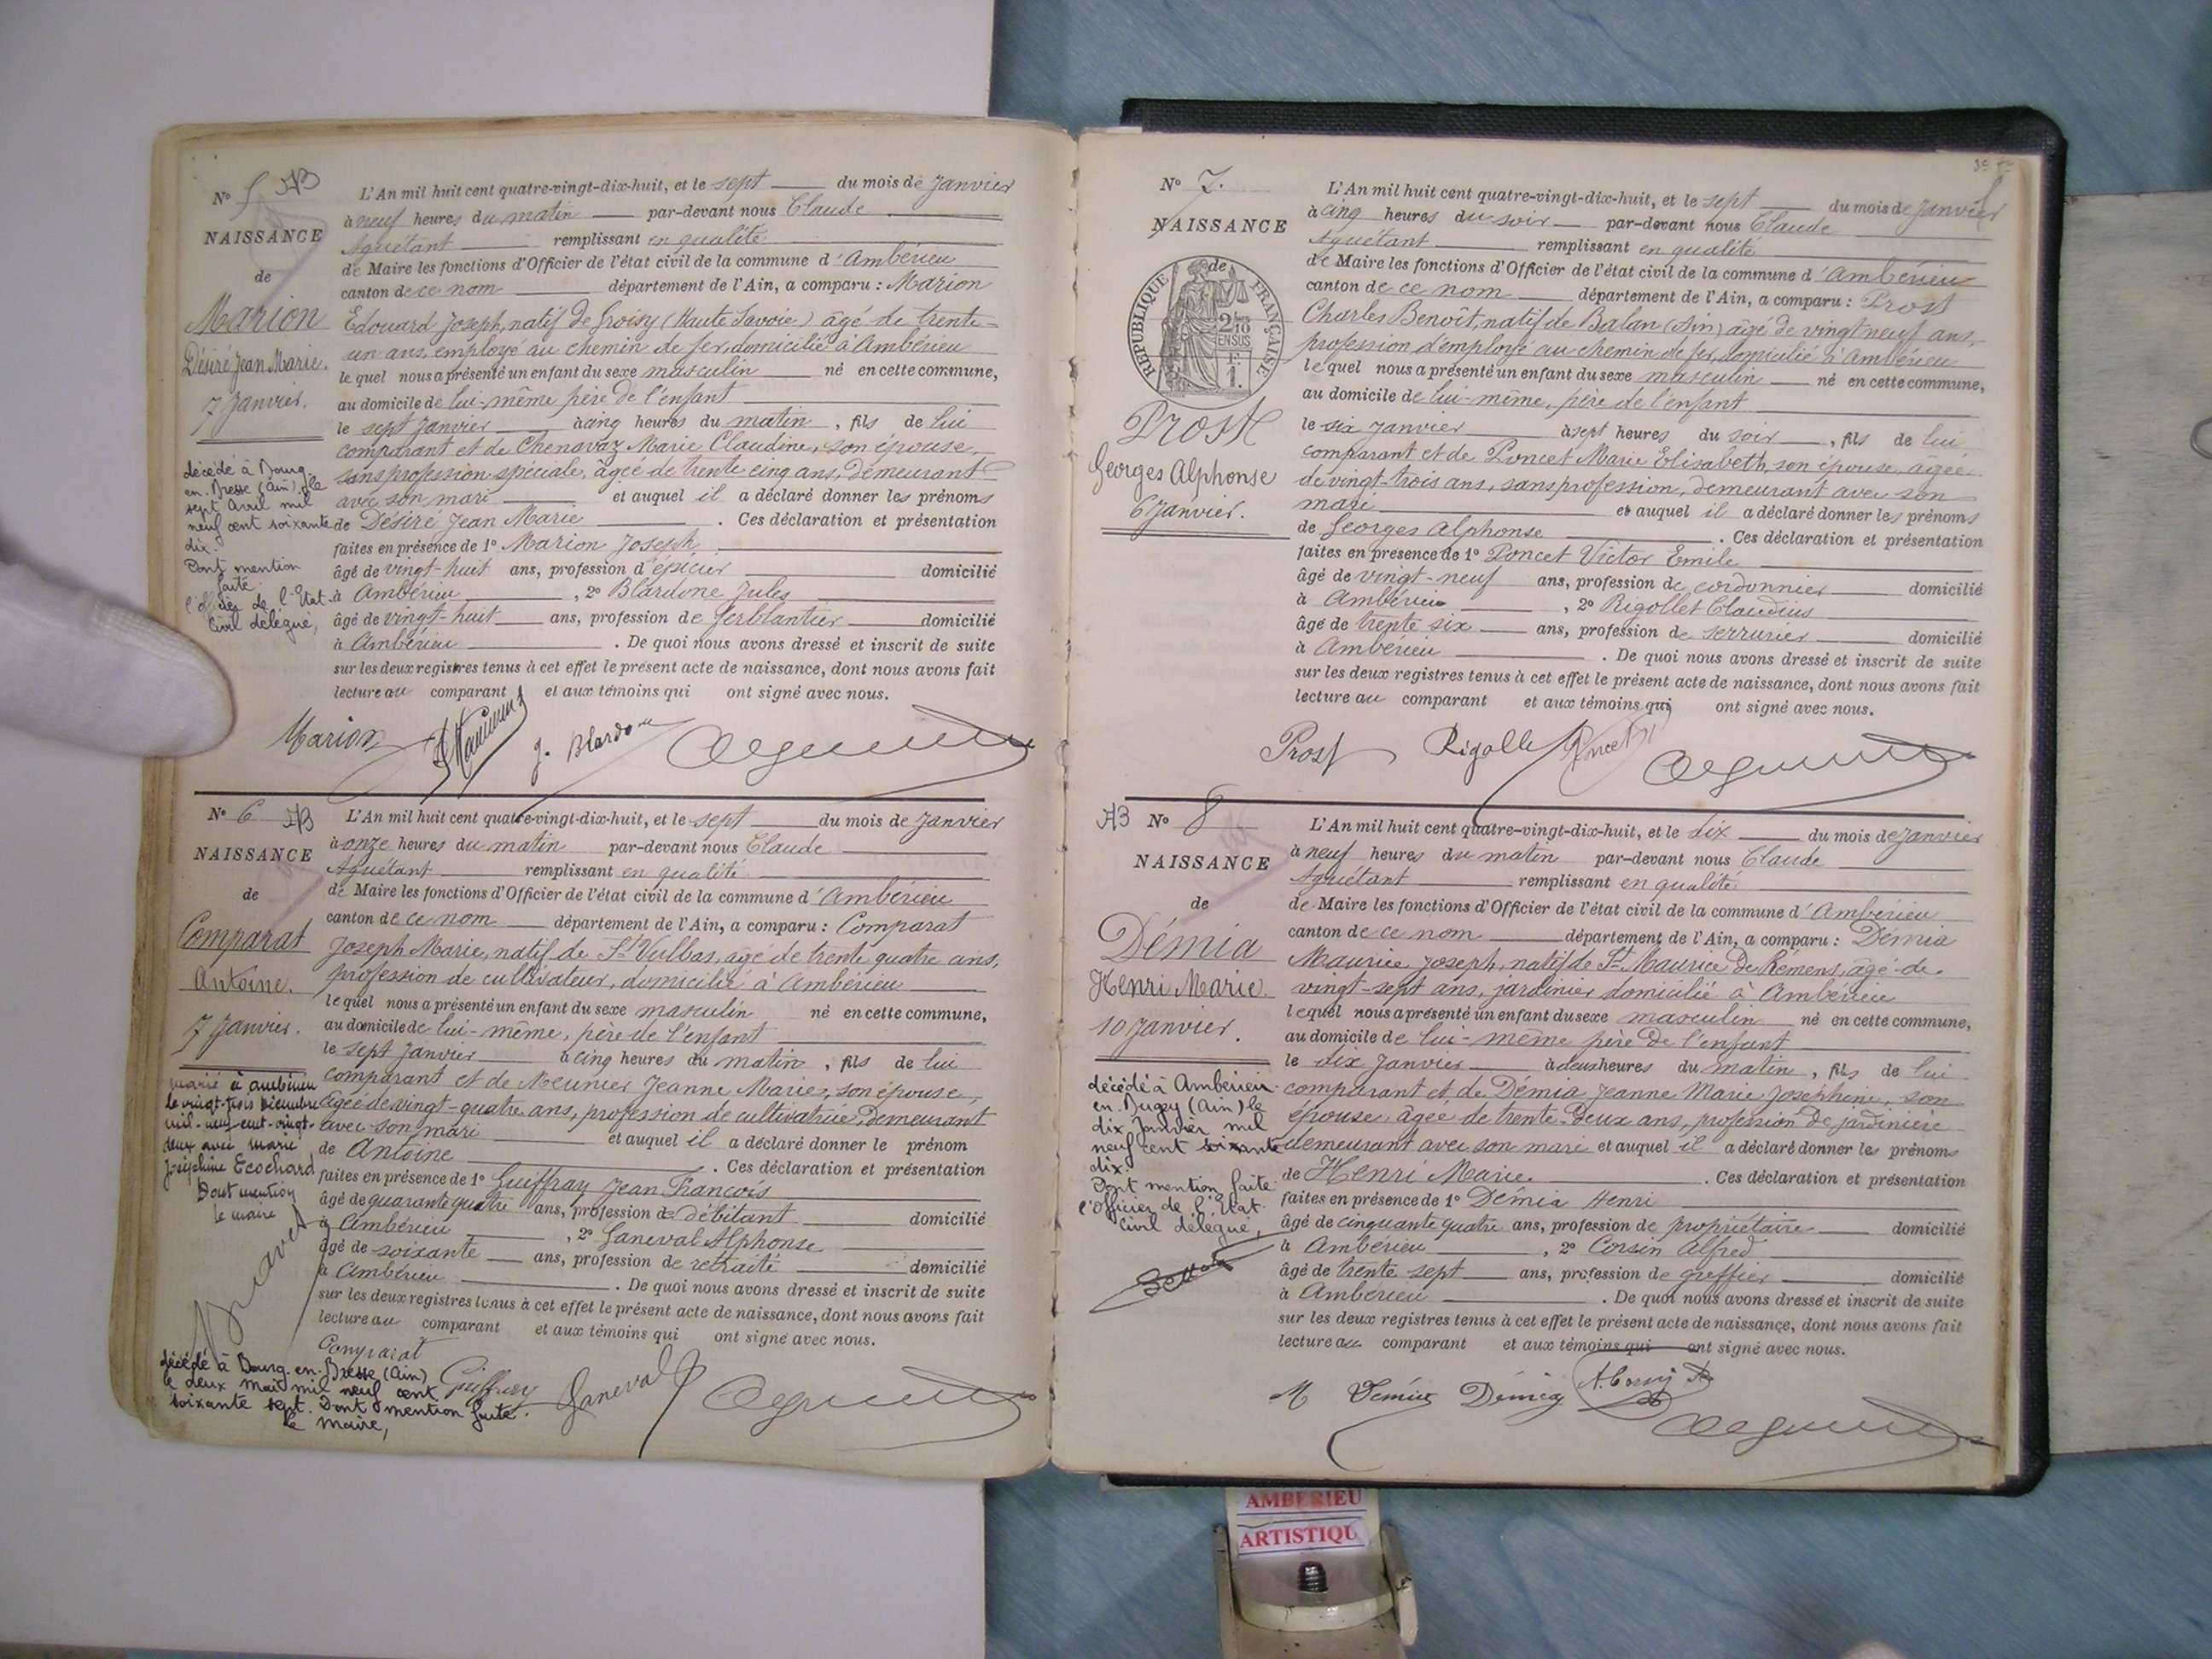 N° 5 AB
NAISSANCE
de
Marion
Désiré Jean Marie.
7 Janvier.
décédé à Bourg-
en-Bresse (Ain), le
sept Avril mil
neuf cent soixante
dix.
Dont mention
faite
l'officier de l'Etat
Civil délégué,
L'An mil huit cent quatre-vingt-dix-huit, et le sept du mois de Janvier
à neuf heures du matin par-devant nous Claude
Aguétant remplissant en qualité
de Maire les fonctions d'Officier de l'état civil de la commune d'Ambérieu
canton de ce nom département de l'Ain, a comparu : Marion
Edouard Joseph, natif de Groisy (Haute Savoie) âgé de trente-
un ans, employé au chemin de fer, domicilié à Ambérieu
lequel nous a présenté un enfant du sexe masculin né en cette commune,
au domicile de lui-même père de l'enfant
le sept Janvier à cinq heures du matin, fils de lui
comparant et de Chenavaz Marie Claudine, son épouse,
sans profession spéciale, âgée de trente cinq ans, demeurant
avec son mari et auquel il a déclaré donner les prénoms
de Désiré Jean Marie. Ces déclaration et présentation
faites en présence de 1° Marion Joseph
âgé de vingt-huit ans, profession d'épicier domicilié
à Ambérieu, 2° Blardone Jules
âgé de vingt-huit ans, profession de ferblantier domicilié
à Ambérieu. De quoi nous avons dressé et inscrit de suite
sur les deux registres tenus à cet effet le présent acte de naissance, dont nous avons fait
lecture au comparant et aux témoins qui ont signé avec nous.
Marion J. Blardone
N° 6 AB
NAISSANCE
de
Comparat
Antoine.
7 Janvier.
marié à Ambérieu
le vingt-trois Décembre
mil-neuf-cent-vingt-
deux avec Marie
Joséphine Ecochard
Dont mention
le maire
L'An mil huit cent quatre-vingt-dix-huit, et le sept du mois de Janvier
à onze heures du matin par-devant nous Claude
Aguétant remplissant en qualité
de Maire les fonctions d'Officier de l'état civil de la commune d'Ambérieu
canton de ce nom département de l'Ain, a comparu : Comparat
Joseph Marie, natif de St Vulbas, âgé de trente quatre ans,
profession de cultivateur, domicilié à Ambérieu
lequel nous a présenté un enfant du sexe masculin né en cette commune,
au domicile de lui-même, père de l'enfant
le sept Janvier à cinq heures du matin, fils de lui
comparant et de Meunier Jeanne Marie, son épouse,
âgée de vingt-quatre ans, profession de cultivatrice, demeurant
avec son mari et auquel il a déclaré donner le prénom
de Antoine. Ces déclaration et présentation
faites en présence de 1° Guiffray Jean François
âgé de quarante quatre ans, profession de débitant domicilié
à Ambérieu, 2° Ganeval Alphonse
âgé de soixante ans, profession de retraité domicilié
à Ambérieu. De quoi nous avons dressé et inscrit de suite
sur les deux registres tenus à cet effet le présent acte de naissance, dont nous avons fait
lecture au comparant et aux témoins qui ont signé avec nous.
Comparat Guiffray Ganeval
décédé à Bourg-en-Bresse (Ain)
le deux Mai mil neuf cent
soixante sept. Dont mention faite.
le Maire,
N° 7.
NAISSANCE
de
RÉPUBLIQUE FRANÇAISE
2/10
EN SUS
1 F.
Prost
Georges Alphonse
6 Janvier.
L'An mil huit cent quatre-vingt-dix-huit, et le sept du mois de Janvier
à cinq heures du soir par-devant nous Claude
Aguétant remplissant en qualité
de Maire les fonctions d'Officier de l'état civil de la commune d'Ambérieu
canton de ce nom département de l'Ain, a comparu : Prost
Charles Benoît, natif de Balan (Ain) âgé de vingt neuf ans,
profession d'employé au chemin de fer, domicilié à Ambérieu
lequel nous a présenté un enfant du sexe masculin né en cette commune,
au domicile de lui-même, père de l'enfant
le six Janvier à sept heures du soir, fils de lui
comparant et de Poncet Marie Elisabeth, son épouse, âgée
de vingt-trois ans, sans profession, demeurant avec son
mari et auquel il a déclaré donner les prénoms
de Georges Alphonse. Ces déclaration et présentation
faites en présence de 1° Poncet Victor Emile
âgé de vingt-neuf ans, profession de cordonnier domicilié
à Ambérieu, 2° Rigollet Claudius
âgé de trente six ans, profession de serrurier domicilié
à Ambérieu. De quoi nous avons dressé et inscrit de suite
sur les deux registres tenus à cet effet le présent acte de naissance, dont nous avons fait
lecture au comparant et aux témoins qui ont signé avec nous.
Prost Rigollet Poncet
AB N° 8
NAISSANCE
de
Démia
Henri Marie.
10 Janvier.
décédé à Ambérieu-
en-Bugey (Ain) le
dix Janvier mil
neuf cent soixante
dix.
Dont mention faite
l'officier de l'Etat
Civil délégué,
L'An mil huit cent quatre-vingt-dix-huit, et le dix du mois de Janvier
à neuf heures du matin par-devant nous Claude
Aguétant remplissant en qualité
de Maire les fonctions d'Officier de l'état civil de la commune d'Ambérieu
canton de ce nom département de l'Ain, a comparu : Démia
Maurice Joseph, natif de St Maurice de Rémens, âgé de
vingt-sept ans, jardinier domicilié à Ambérieu
lequel nous a présenté un enfant du sexe masculin né en cette commune,
au domicile de lui-même père de l'enfant
le dix Janvier à deux heures du matin, fils de lui
comparant et de Démia Jeanne Marie Joséphine, son
épouse âgée de trente-deux ans, profession de jardinière
demeurant avec son mari et auquel il a déclaré donner les prénoms
de Henri Marie. Ces déclaration et présentation
faites en présence de 1° Démia Henri
âgé de cinquante quatre ans, profession de propriétaire domicilié
à Ambérieu, 2° Corsin Alfred
âgé de trente sept ans, profession de greffier domicilié
à Ambérieu. De quoi nous avons dressé et inscrit de suite
sur les deux registres tenus à cet effet le présent acte de naissance, dont nous avons fait
lecture au comparant et aux témoins qui ont signé avec nous.
M Démia Démia A. Corsin
AMBERIEU
ARTISTIQU